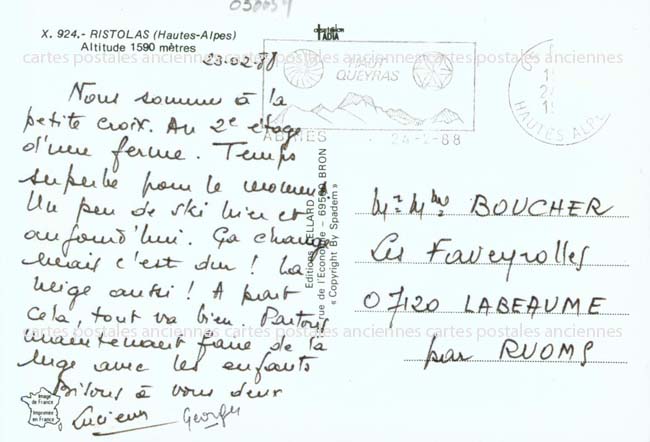 030034
X. 924.- RISTOLAS (Hautes-Alpes)
Altitude 1590 mètres
23-02-88
Nous sommes à la
petite croix. Au 2e étage
d'une ferme. Temps
superbe pour le moment
Un peu de ski hier et
aujourd'hui. Ça change
mais c'est dur ! La
neige aussi ! A part
cela, tout va bien. Partons
maintenant faire de la
luge avec les enfants
Bisous à vous deux
Lucienne Georges
Image
de France
Imprimée
en France
Editions CELLARD
rue de l'Economie - 69500 BRON
« Copyright By Spadem »
HAUT
QUEYRAS
ABRIES 24-2-88
HAUTES ALPES
Mr Mme BOUCHER
Les Faveyrolles
07120 LABEAUME
par RUOMS
cartes postales anciennes cartes postales anciennes cartes postales anciennes cartes postales anciennes
cartes postales anciennes cartes postales anciennes cartes postales anciennes cartes postales anciennes